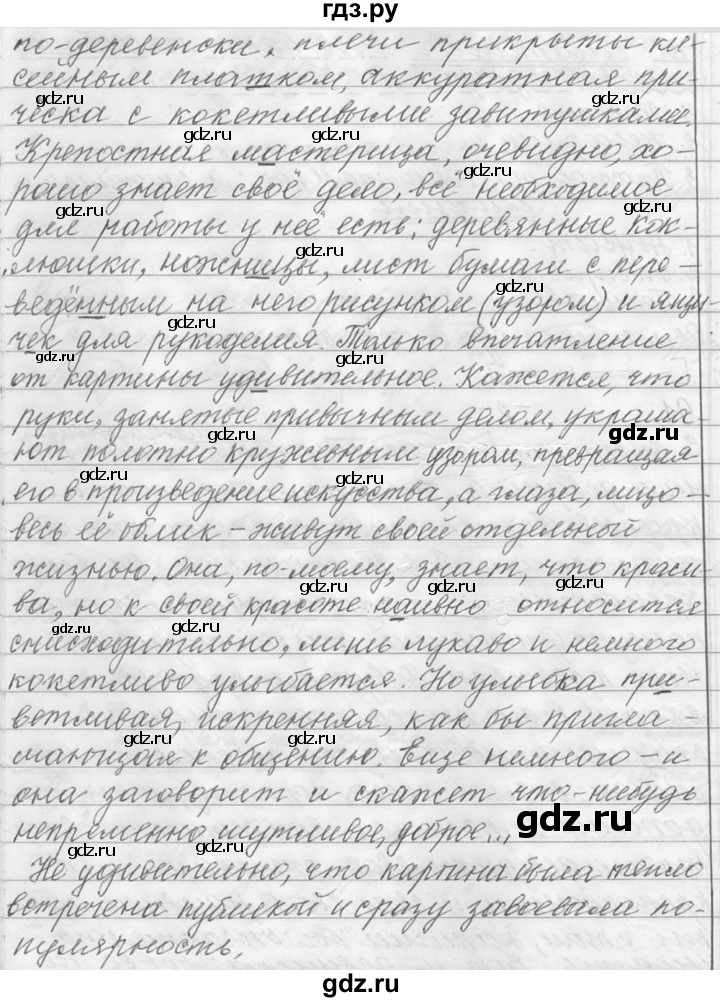 гдз.ру
по-деревенски, плечи прикрыты ки-
сейным платком, аккуратная при-
ческа с кокетливыми завитушками.
Крепостная мастерица, очевидно, хо-
рошо знает своё дело, всё необходимое
для работы у неё есть: деревянные кок-
люшки, ножницы, лист бумаги с пере-
ведённым на него рисунком (узором) и ящи-
чек для рукоделия. Только впечатление
от картины удивительное. Кажется, что
руки, занятые привычным делом, украша-
ют полотно кружевным узором, превращая
его в произведение искусства, а глаза, лицо-
весь её облик - живут своей отдельной
жизнью. Она, по-моему, знает, что краси-
ва, но к своей красоте наивно относится
снисходительно, лишь лукаво и немного
кокетливо улыбается. Но улыбка при-
ветливая, искренняя, как бы пригла-
шающая к общению. Еще немного - и
она заговорит и скажет что-нибудь
непременно шутливое, доброе...
Не удивительно, что картина была тепло
встречена публикой и сразу завоевала по-
пулярность.
gdz.ru